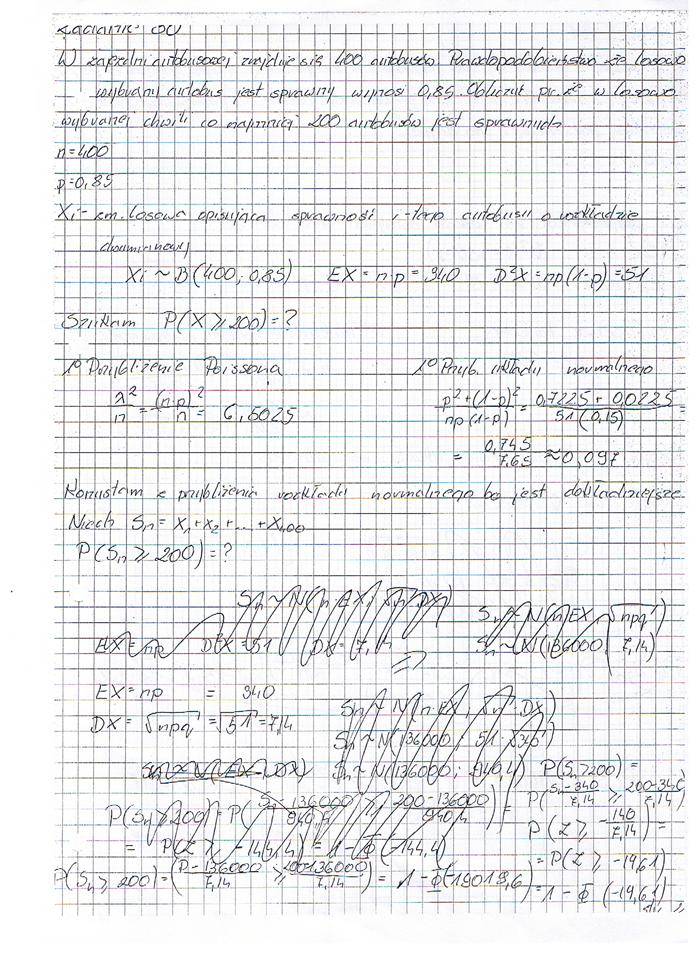 W zajezdni autobusowej znajduje się 400 autobusów. Prawdopodobieństwo że losowo
wybrany autobus jest sprawny wynosi 0,85. Obliczyć pr. że w losowo
wybranej chwili co najmniej 200 autobusów jest sprawnych
n=400
p=0,85
Xi - zm. losowa opisująca sprawność i-tego autobusu o rozkładzie
dwumianowy
Xi ~ B(400; 0,85) EX = n·p = 340 D²X = np(1-p) = 51
Szukam P(X ≥ 200) = ?
1° Przybliżenie Poissona 1° Przyb. układu normalnego
λ²/n = (n·p)²/n = 6,5025 p²+(1-p)²/np(1-p) = 0,7225 + 0,0225/51(0,15) =
= 0,745/7,65 ≈ 0,097
Korzystam z przybliżenia rozkładu normalnego bo jest dokładniejsze.
Niech Sn = X1 + X2 + ... + X400
P(Sn ≥ 200) = ?
Sn ~ N(n EX, √n DX) Sn ~ N(n EX, √npq)
EX = np D²X = 51 DX = 7,14 => Sn ~ N(136000, 7,14)
EX = np = 340 Sn ~ N(n·EX, √n·DX)
DX = √npq = √51 = 7,14
Sn ~ N(EX, DX) Sn ~ N(136000; 940,4) P(Sn ≥ 200) =
P(Sn ≥ 200) = P(Sn - 136000/940,4 ≥ 200 - 136000/940,4) = P(Sn - 340/7,14 ≥ 200-340/7,14)
P(Z ≥ -140/7,14) =
= P(Z ≥ -144,4) = 1 - Φ(-144,4)
= P(Z ≥ -19,61)
P(Sn ≥ 200) = (P - 136000/7,14 ≥ 200-136000/7,14) = 1 - Φ(-19019,6) = 1 - Φ(-19,61)